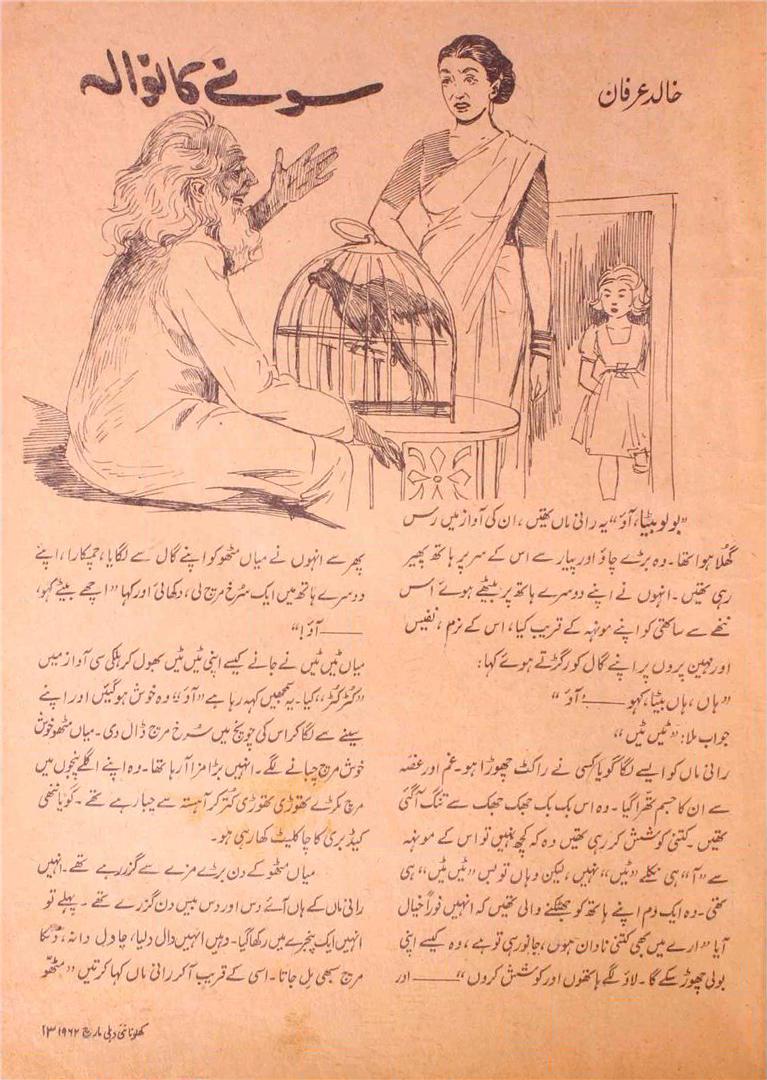 سونے کا نوالہ
خالد عرفان
"بولو بیٹا، آؤ" یہ رانی ماں تھیں، ان کی آواز میں رس
گھلا ہوا تھا۔ وہ بڑے چاؤ اور پیار سے اس کے سر پر ہاتھ پھیر
رہی تھیں۔ انہوں نے اپنے دوسرے ہاتھ پر بیٹھے ہوئے اس
ننھے سے ساتھی کو اپنے مونہہ کے قریب کیا، اس کے نرم، نفیس
اور مہین پروں پر اپنے گال کو رگڑتے ہوئے کہا:
"ہاں، ہاں بیٹا، کہو ——! آؤ"
جواب ملا: "ٹیں ٹیں"
رانی ماں کو ایسے لگا گویا کسی نے راکٹ چھوڑا ہو۔ غم اور غصہ
سے ان کا جسم تھرا گیا۔ وہ اس بک بک جھک جھک سے تنگ آگئی
تھیں۔ کتنی کوشش کر رہی تھیں وہ کہ کچھ نہیں تو اس کے مونہہ
سے "آ" ہی نکلے "ٹیں" نہیں، لیکن وہاں تو بس "ٹیں ٹیں" ہی
تھی۔ وہ ایک دم اپنے ہاتھ کو جھٹکنے والی تھیں کہ انہیں فوراً خیال
آیا "ارے میں بھی کتنی نادان ہوں، جانور ہی تو ہے، وہ کیسے اپنی
بولی چھوڑ سکے گا۔ لاؤ لگے ہاتھوں اور کوشش کروں" —— اور
پھر سے انہوں نے میاں مٹھو کو اپنے گال سے لگایا، چمکارا، اپنے
دوسرے ہاتھ میں ایک سرخ مرچ لی، دکھائی اور کہا "اچھے بیٹے کہو،
—— آؤ!"
میاں ٹیں ٹیں نے جانے کیسے اپنی ٹیں ٹیں بھول کر ہلکی سی آواز میں
"کٹر کٹر" کیا۔ یہ سمجھیں کہہ رہا ہے "آؤ" وہ خوش ہوگئیں اور اپنے
سینے سے لگا کر اس کی چونچ میں سرخ مرچ ڈال دی۔ میاں مٹھو خوش
خوش مرچ چبانے لگے۔ انہیں بڑا مزا آرہا تھا۔ وہ اپنے اگلے پنجوں میں
مرچ پکڑے تھوڑی تھوڑی کتر کر آہستہ سے چبا رہے تھے۔ گویا ننھی
کیڈبری کا چاکلیٹ کھا رہی ہو۔
میاں مٹھو کے دن بڑے مزے سے گزر رہے تھے۔ انہیں
رانی ماں کے ہاں آئے دس اور دس بیس دن گزرے تھے۔ پہلے تو
انہیں ایک پنجرے میں رکھا گیا۔ وہیں انہیں دال دلیا، چاول دانہ،
مرچ سبھی مل جاتا۔ اسی کے قریب آکر رانی ماں کہا کرتیں "مٹھو
کھلونا نئی دہلی مارچ ۱۹۶۲ ۱۳